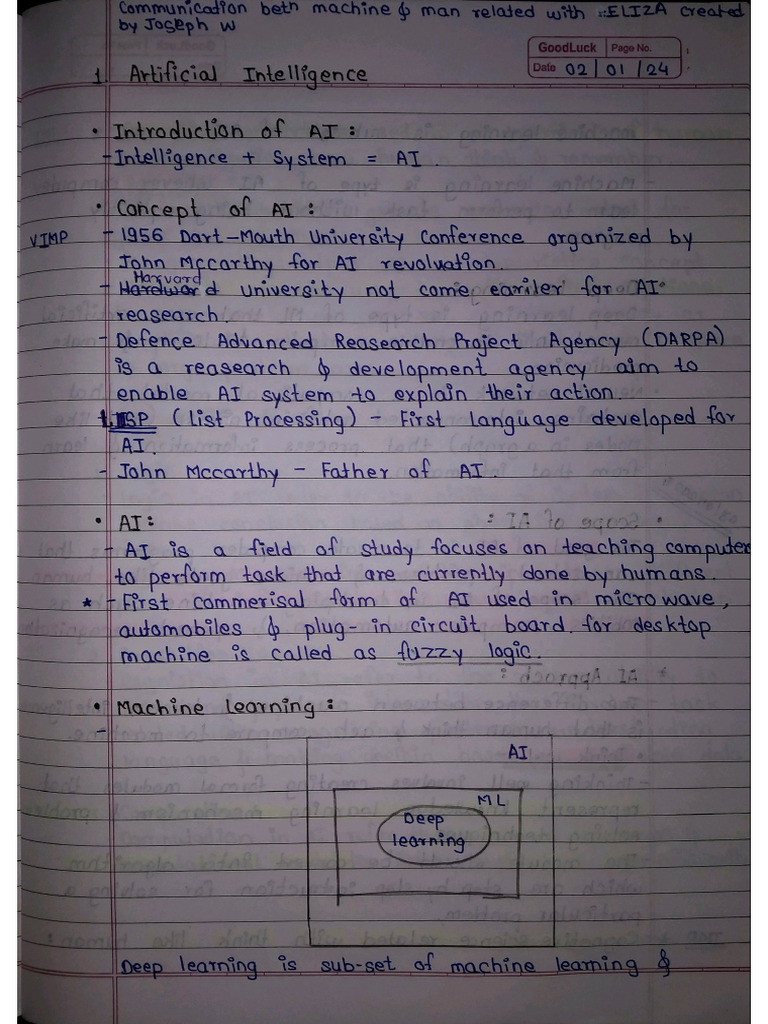 Communication betn machine & man related with :: ELIZA created
by Joseph W
GoodLuck Page No.
Date 02 / 01 / 24
1. Artificial Intelligence
• Introduction of AI :
- Intelligence + System = AI .
• Concept of AI :
VIMP - 1956 Dart-Mouth University Conference organized by
John Mccarthy for AI revoluation.
Harvard
- University not come eariler for AI
reasearch.
- Defence Advanced Reasearch Project Agency (DARPA)
is a reasearch & development agency aim to
enable AI system to explain their action
LISP (list Processing) - First language developed for
AI.
- John Mccarthy - Father of AI.
• AI :
- AI is a field of study focuses on teaching computer
to perform task that are currently done by humans.
* - First commerisal form of AI used in microwave,
automobiles & plug-in circuit board for desktop
machine is called as fuzzy logic.
• Machine learning :
-
AI
ML
Deep
learning
Deep learning is sub-set of machine learning &